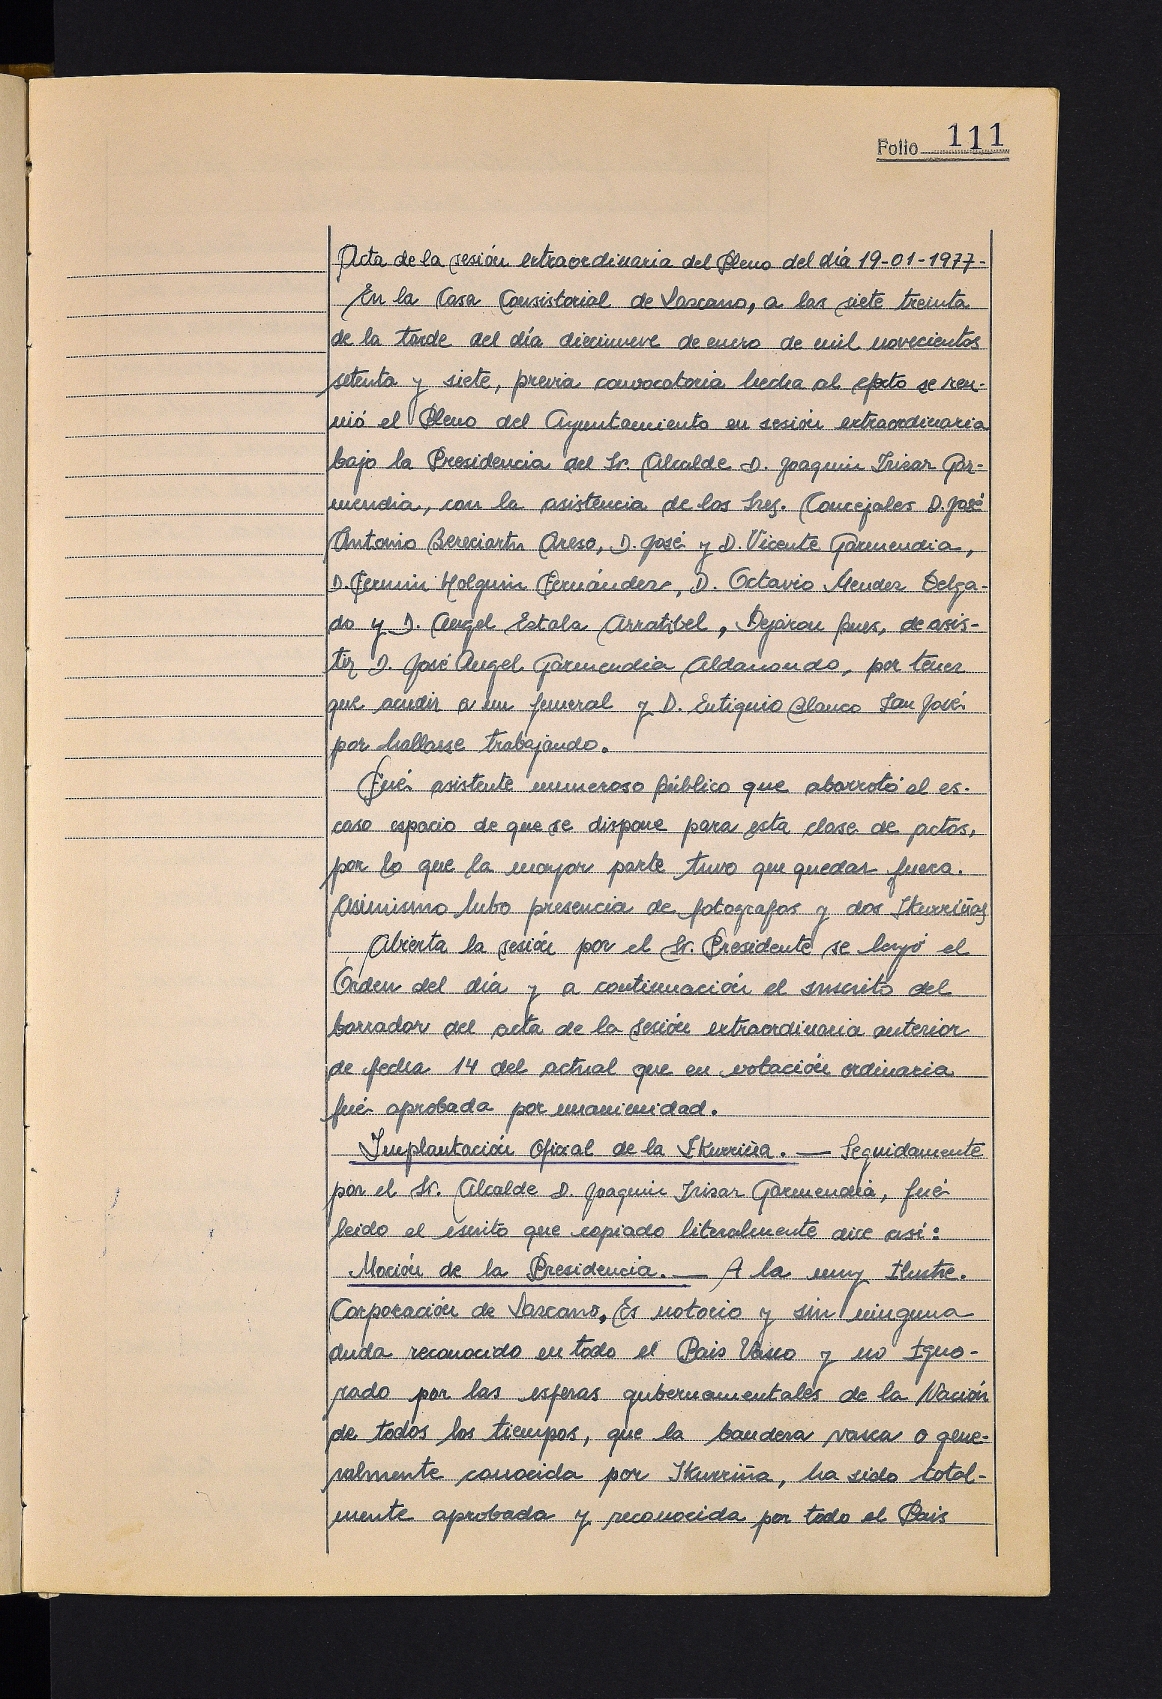 Folio 111
Acta de la sesión extraordinaria del Pleno del día 19-01-1977-
En la Casa Consistorial de Lascano, a las siete treinta
de la tarde del día diecinueve de enero de mil novecientos
setenta y siete, previa convocatoria hecha al efecto se reu-
nió el Pleno del Ayuntamiento en sesión extraordinaria
bajo la Presidencia del Sr. Alcalde D. Joaquin Irizar Gar-
mendia, con la asistencia de los Sres. Concejales D. José
Antonio Bereciartu Areso, D. José y D. Vicente Garmendia,
D. Fermin Holguin Fernández, D. Octavio Mendez Delga-
do y D. Angel Estala Arratibel, Dejaron pues, de asis-
tir D. José Angel Garmendia Aldanondo, por tener
que acudir a un funeral y D. Eutiquio Blanco San José
por hallarse trabajando.
Fué asistente numeroso público que abarrotó el es-
caso espacio de que se dispone para esta clase de actos,
por lo que la mayor parte tuvo que quedar fuera.
Asimismo hubo presencia de fotografos y dos Ikurriñas
Abierta la sesión por el Sr. Presidente se leyó el
Orden del día y a continuación el suscrito del
borrador del acta de la sesión extraordinaria anterior
de fecha 14 del actual que en votación ordinaria
fué aprobada por unanimidad.
Implantación Oficial de la Ikurriña. — Seguidamente
por el Sr. Alcalde D. Joaquin Irizar Garmendia, fué
leido el escrito que copiado literalmente dice asi:
Moción de la Presidencia. — A la muy Ilustre.
Corporación de Lascano, Es notorio y sin ninguna
duda reconocido en todo el Pais Vasco y no Igno-
rado por las esferas gubernamentales de la Nación
de todos los tiempos, que la bandera vasca o gene-
ralmente conocida por Ikurriña, ha sido total-
mente aprobada y reconocida por todo el Pais